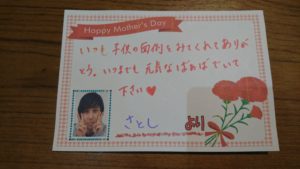 Happy Mother's Day
いつも子供の面倒をみてくれてありが
とう。いつまでも元気なばぁばでいて
下さい♥
さとし より